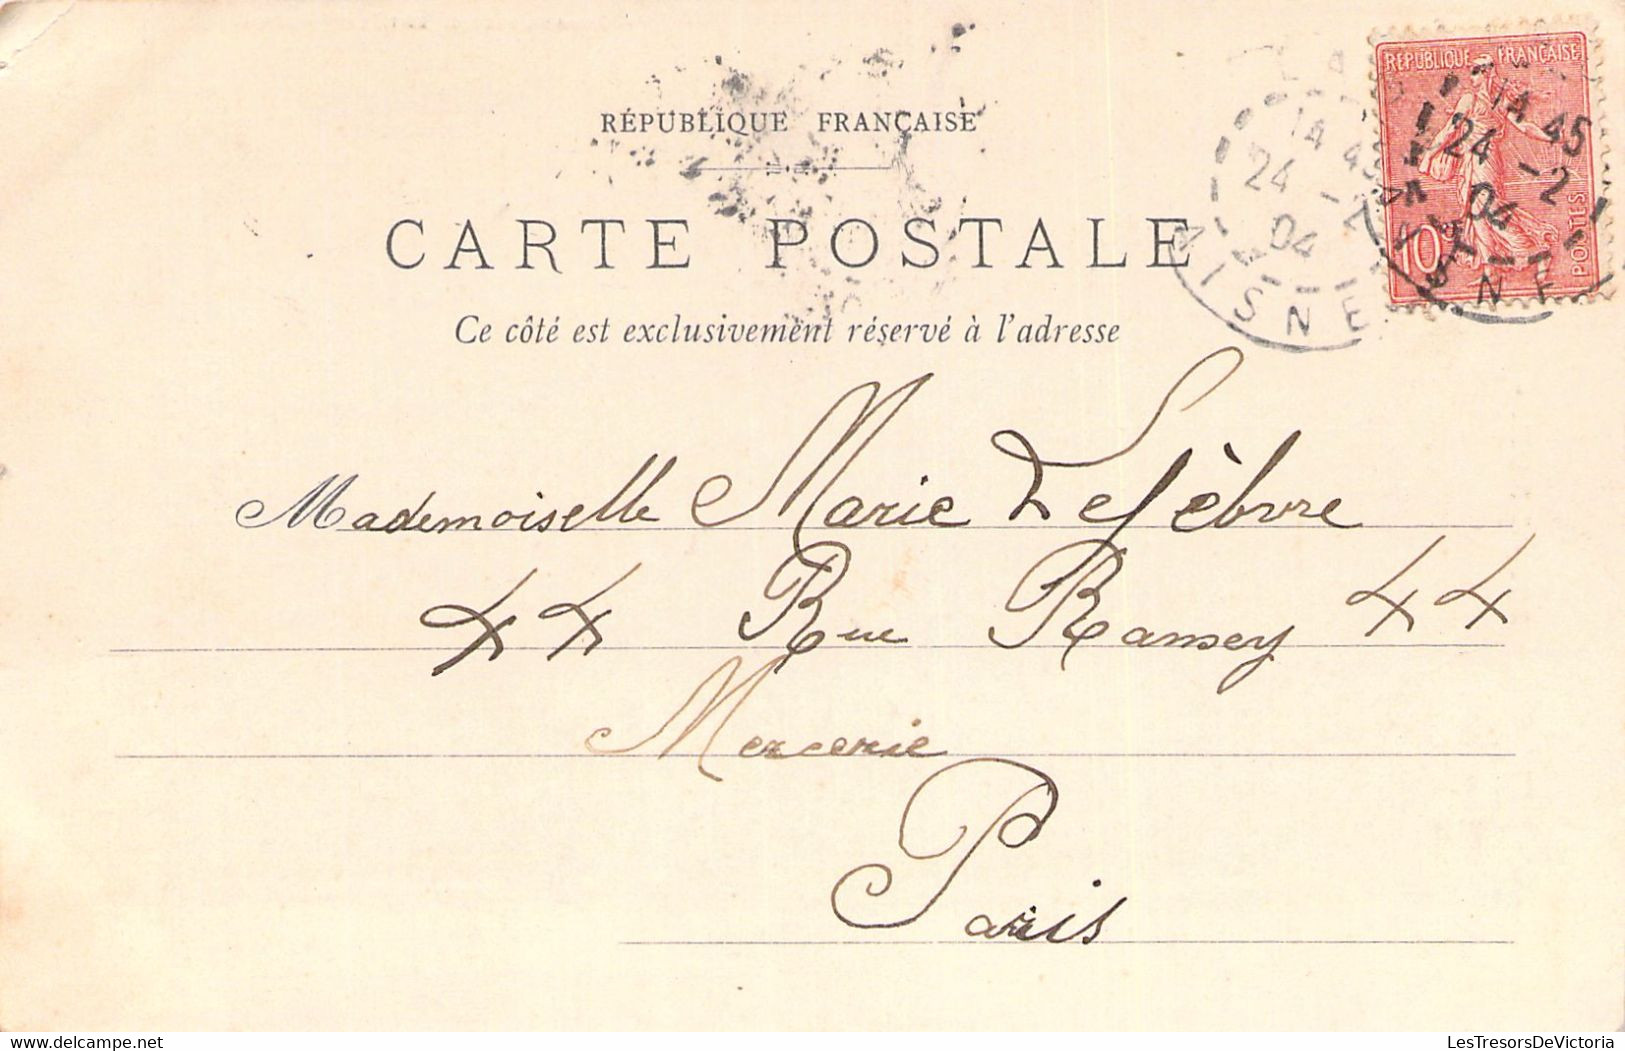 RÉPUBLIQUE FRANÇAISE
CARTE POSTALE
Ce côté est exclusivement réservé à l'adresse
RÉPUBLIQUE FRANÇAISE
10
POSTES
14 45
24 -2
04
AISNE
14 45
24 -2
04
AISNE
Mademoiselle Marie Lefèbvre
44 Rue Ramsey 44
Mercerie
Paris
delcampe.net
LesTresorsDeVictoria